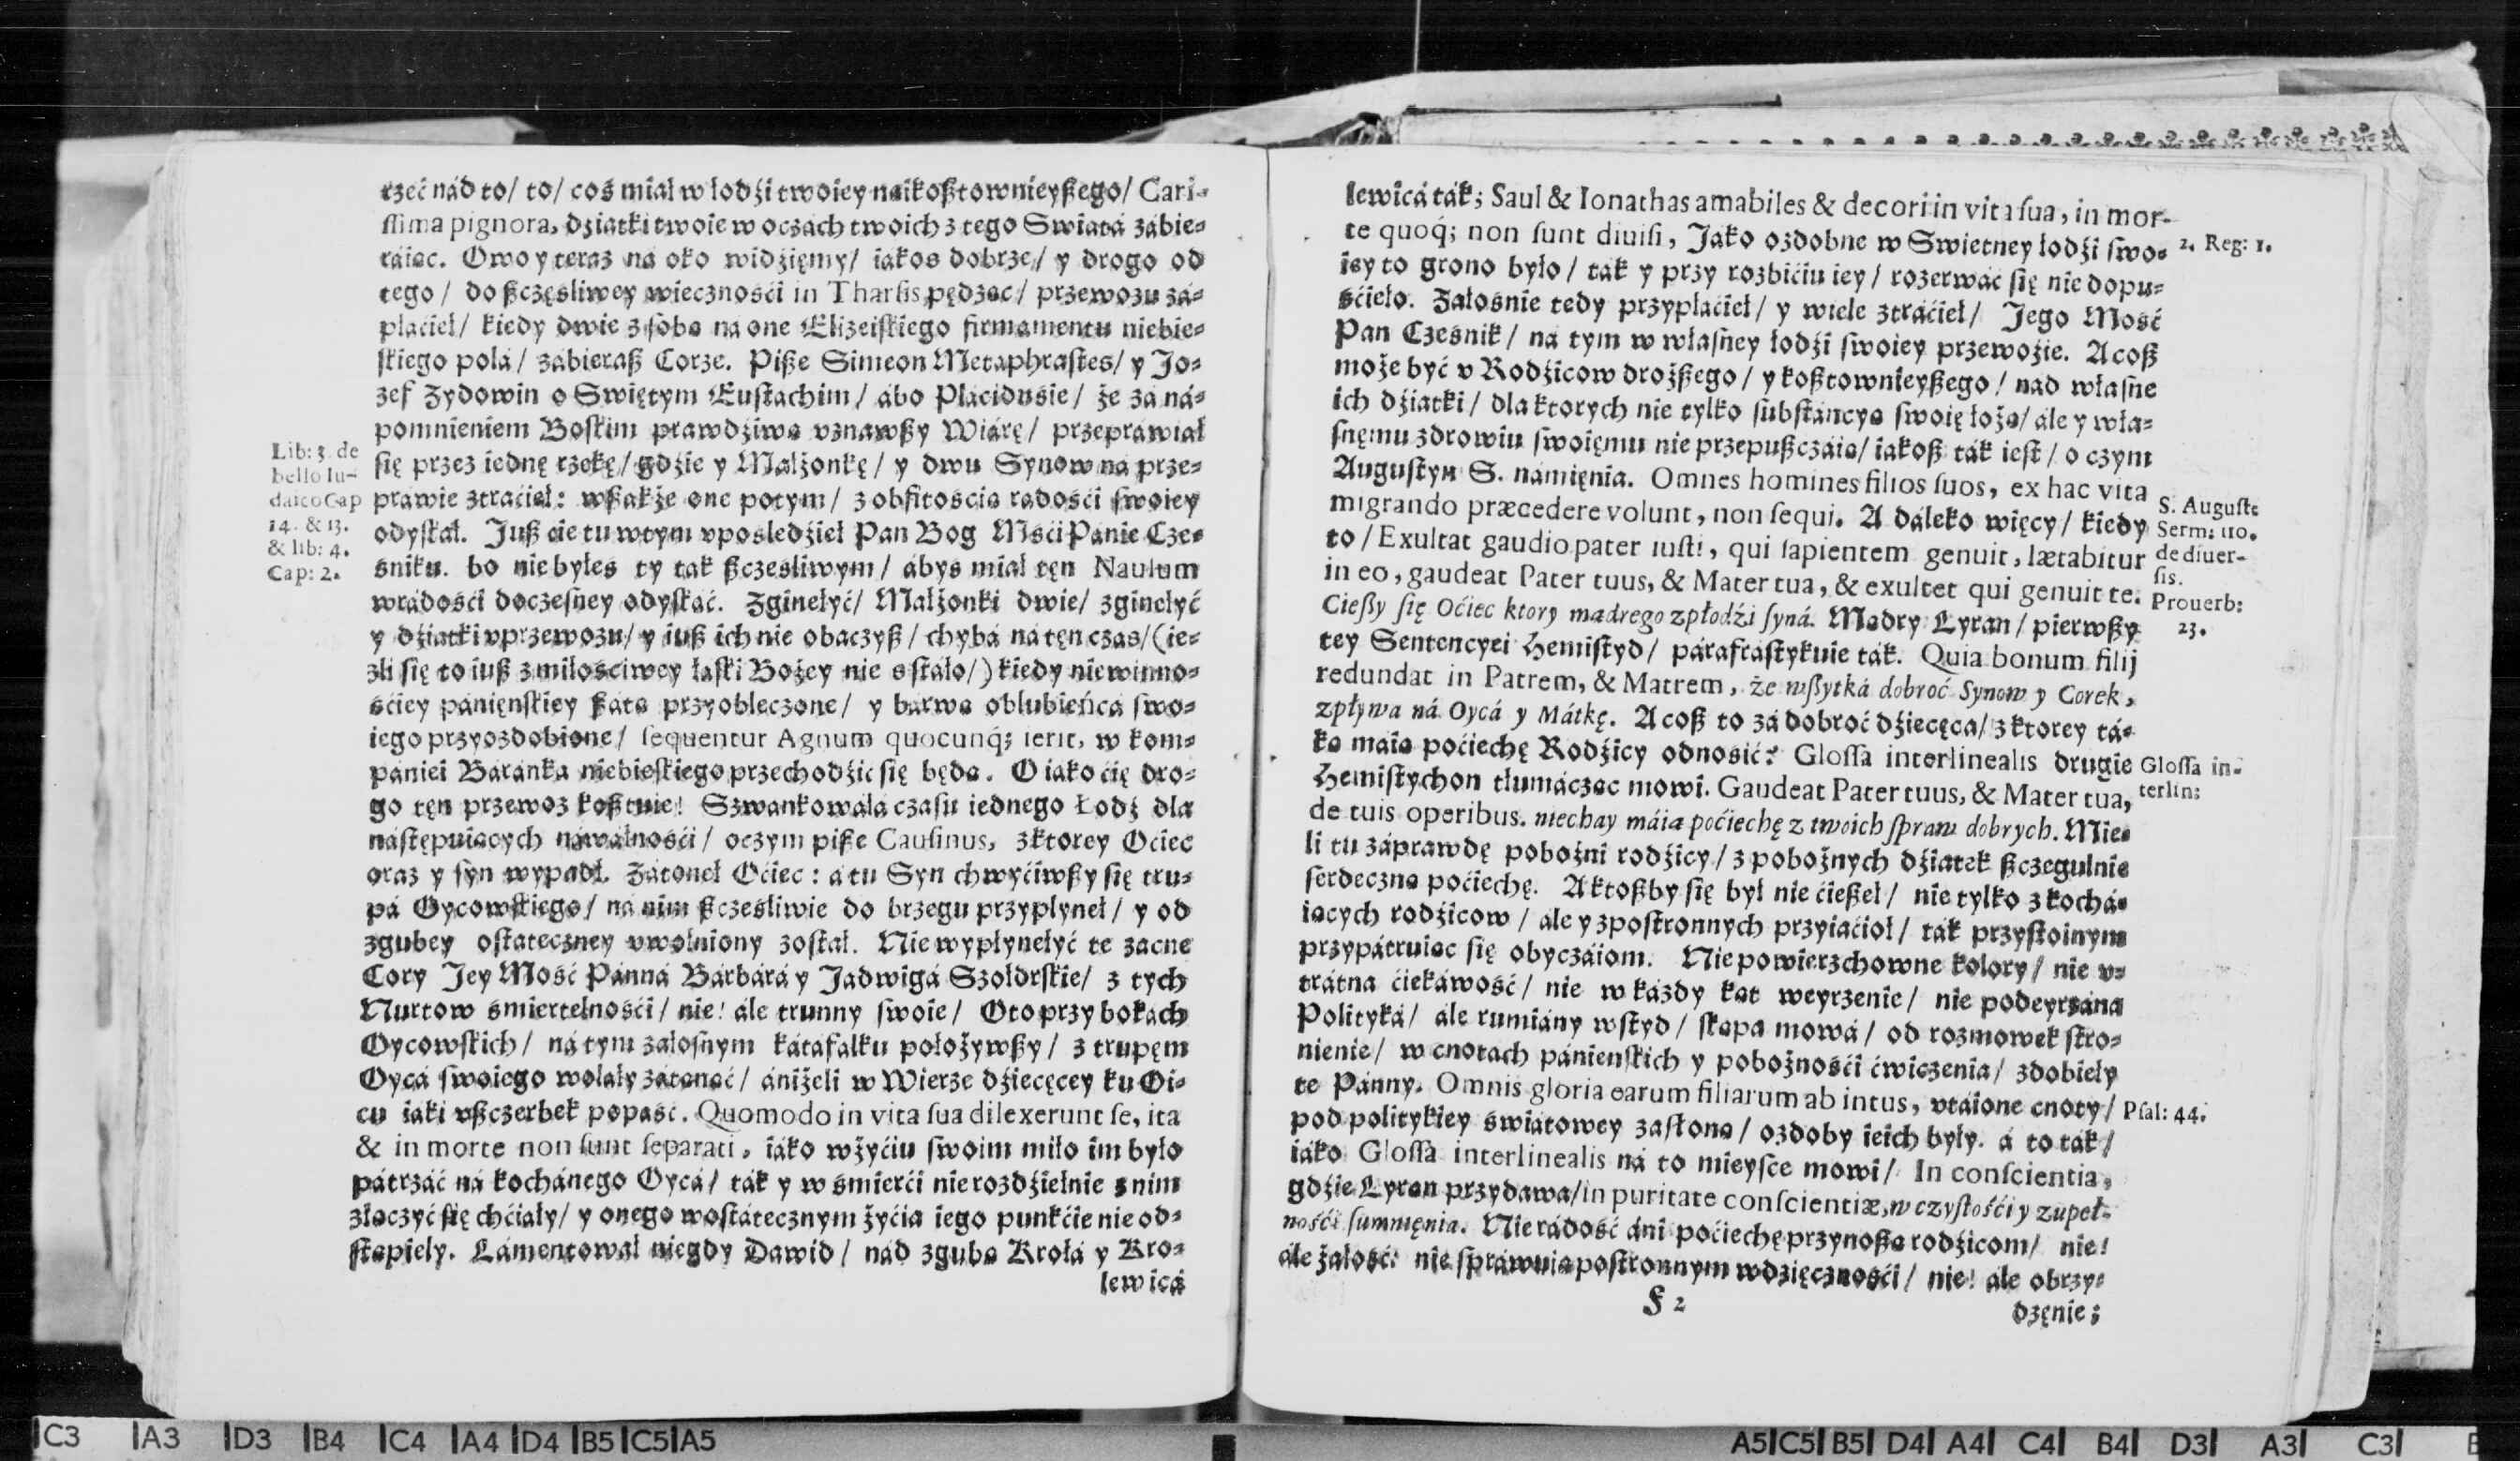 rzeć nád to/ to/ coś miał w łodźi twoiey naikosztownieyszego/ Cari-
ssima pignora, dźiatki twoie w oczách twoich z tego Swiatá zábie-
ráiąc. Owo y teraz ná oko widźięmy/ iákos dobrze/ y drogo od
tego/ do szczęsliwey wiecznośći in Tharsis pędząc/ przewozu zá-
płaćieł/ kiedy dwie z sobą na one Elizeiskiego firmamentu niebie-
skiego polá/ zábierasz Corze. Pisze Simeon Metaphrastes/ y Jo-
zef Zydowin o Swiętym Eustachim/ ábo Plácidusie/ że zá ná-
pomnieniem Boskim prawdźiwą vznawszy Wiárę/ przepráwiał
się przez iednę rzekę/ gdźie y Małżonkę/ y dwu Synow ná prze-
práwie ztráćieł: wszákże one potym/ z obfitośćią rádośći swoiey
odyskał. Jusz ćie tu w tym vpośledźieł Pan Bog Mśći Pánie Cze-
śniku. bo nie byłeś ty ták szczesliwym/ ábyś miał tęn Naulum
w rádośći doczesney odyskáć. Zginełyć/ Małżonki dwie/ zginełyć
y dźiatki v przewozu/ y iusz ich nie obaczysz/ chybá ná tęn czas/ (ie-
zli się to iusz z miłośćiwey łaski Bożey nie sstało/) kiedy niewinno-
śćiey pánięnskiey szatą przyobleczone/ y bárwą oblubieńcá swo-
iego przyozdobione/ sequentur Agnum quocunq́; ierit, w kom-
pániei Báránká niebieskiego przechodźić się będą. O iáko ćię dro-
go tęn przewoz kosztuie! Szwankowáłá czásu iednego Łodź dla
nástępuiących nawáłnośći/ o czym pisze Causinus, z ktorey Oćiec
oraz y syn wypadł. Zátonął Oćiec: á tu Syn chwyćiwszy się tru-
pá Oycowskiego/ ná nim szczesliwie do brzegu przypłynął/ y od
zguby ostáteczney vwolniony został. Nie wypłynełyć te zacne
Cory Jey Mość Pánná Bárbárá y Jadwigá Szołdrskie/ z tych
Nurtow śmiertelnośći/ nie! ále trunny swoie/ Oto przy bokách
Oycowskich/ ná tym żałosnym kátáfalku położywszy/ z trupęm
Oycá swoiego wolały zátonąć/ ániżeli w Wierze dźiecęcey ku Oi-
cu iáki vszczerbek popáść. Quomodo in vita sua dilexerunt se, ita
& in morte non sunt separati, iáko w żyćiu swoim miło im było
pátrzáć ná kochánego Oycá/ ták y w śmierći nierozdźielnie z nim
złączyć się chćiáły/ y onego w ostátecznym żyćia iego punkćie nie od-
stąpiely. Lámentował niegdy Dawid/ nád zgubą Krolá y Kro-
lewicá
Lib: 3. de
bello Iu-
daico Cap
14. & 13.
& lib: 4.
Cap: 2.
lewicá ták; Saul & Ionathas amabiles & decori in vita sua, in mor-
te quoq́; non sunt diuisi, Jáko ozdobne w Swietney łodźi swo-
iey to grono było/ ták y przy rozbićiu iey/ rozerwáć się nie dopu-
śćieło. Załośnie tedy przypłáćieł/ y wiele ztráćieł/ Jego Mość
Pan Czesnik/ ná tym w własney łodźi swoiey przewoźie. A cosz
może być v Rodźicow droższego/ y kosztownieyszego/ nád własne
ich dźiatki/ dla ktorych nie tylko substáncyą swoię łożą/ ále y wła-
snęmu zdrowiu swoięmu nie przepuszczáią/ iákosz ták iest/ o czym
Augustyn S. námięnia. Omnes homines filios suos, ex hac vita
migrando præcedere volunt, non sequi. A dáleko więcy/ kiedy
to/ Exultat gaudio pater iusti, qui sapientem genuit, lætabitur
in eo, gaudeat Pater tuus, & Mater tua, & exultet qui genuit te.
Cieszy się Oćiec ktory mądrego zpłodźi syná. Mądry Lyran/ pierwszy
tey Sentencyei Hemistyd/ páráfrástykuie ták. Quia bonum filij
redundat in Patrem, & Matrem, że wszytká dobroć Synow y Corek,
zpływa ná Oycá y Mátkę. A cosz to zá dobroć dźiecęca/ z ktorey tá-
ką máią poćiechę Rodźicy odnośić? Glossa interlinealis drugie
Hemistychon tłumácząc mowi. Gaudeat Pater tuus, & Mater tua,
de tuis operibus. niechay máią poćiechę z twoich spraw dobrych. Mie-
li tu záprawdę pobożni rodźicy/ z pobożnych dźiatek szczegulnie
serdeczną poćiechę. A ktoszby się był nie ćieszeł/ nie tylko z kochá-
iących rodźicow/ ále y z postronnych przyiaćioł/ ták przystoinym
przypátruiąc się obyczáiom. Nie powierzchowne kolory/ nie v-
trátna ćiekáwość/ nie w káżdy kąt weyrzenie/ nie podeyrzána
Polityká/ ále rumiány wstyd/ skąpa mowá/ od rozmowek stro-
nienie/ w cnotách pánienskich y pobożnośći ćwiczenia/ zdobieły
te Pánny. Omnis gloria earum filiarum ab intus, vtáione cnoty/
pod politykiey światowey zasłoną/ ozdoby ieich były. á to ták/
iáko Glossa interlinealis ná to mieysce mowi/ In conscientia,
gdźie Lyran przydawa/ in puritate conscientiæ, w czystośći y zupeł-
nośći sumnięnia. Nie rádość áni poćiechę przynoszą rodźicom/ nie!
ále żałość: nie spráwuią postronnym wdzięcznośći/ nie! ále obrzy-
F 2
dzęnie;
2. Reg: 1.
S. August:
Serm: 110.
de diuer-
sis.
Prouerb:
23.
Glossa in-
terlin:
Psal: 44.
C3 A3 D3 B4 C4 A4 D4 B5 C5 A5
A5 C5 B5 D4 A4 C4 B4 D3 A3 C3